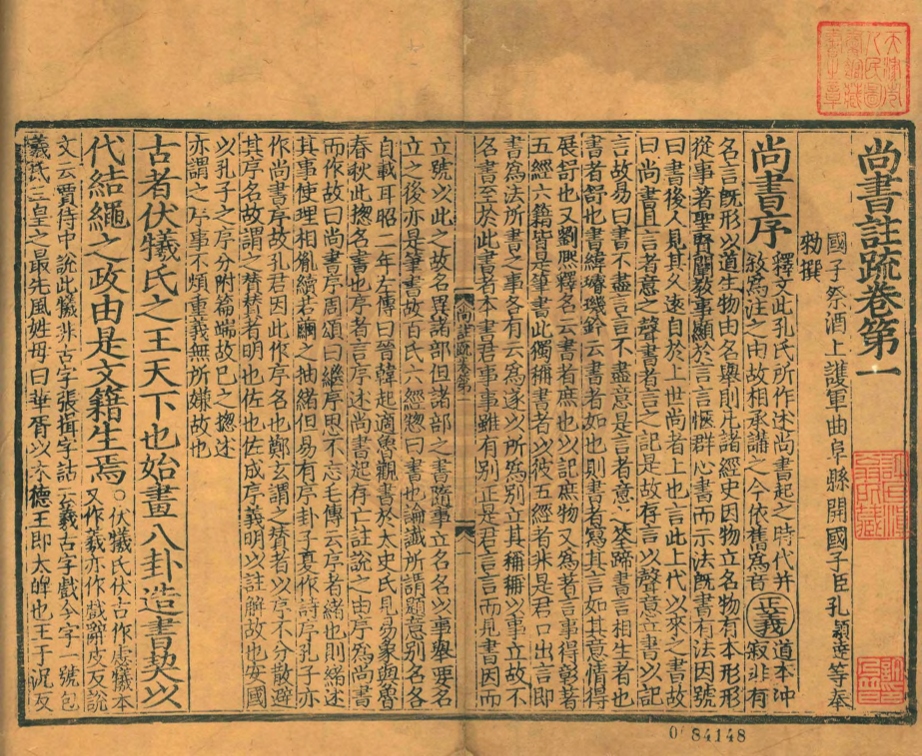 尚書註疏卷第一
國子祭酒上護軍曲阜縣開國子臣孔穎達等奉
勑撰
尚書序 釋文此孔氏所作述尚書起之時代并
敘為注之由故相承講之今依舊為音 正義 道本冲
寂非有
名言既形以道生物由名舉則凡諸經史因物立名物有本形形
從事著聖賢闡教事顯於言言愜群心書而示法既書有法因號
曰書後人見其久遠自於上世尚者上也言此上代以來之書故
曰尚書且言者意之聲書者言之記是故存言以聲意立書以記
言故易曰書不盡言言不盡意是言者意之筌蹄書言相生者也
書者舒也書緯璿璣鈐云書者如也則書者寫其言如其意情得
展舒也又劉熙釋名云書者庶也以記庶物又為著言事得彰著
五經六籍皆是筆書此獨稱書者以彼五經者非是君口出言即
書為法所書之事各有云為遂以所為別立其稱稱以事立故不
名書至於此書者本書君事事雖有別正是君言言而見書因而
尚註疏卷第
立號以此之故名異諸部但諸部之書隨事立名名以事舉要名
立之後亦是筆書故百氏六經惣曰書也論讖所謂題意別名各
自載耳昭二年左傳曰晉韓起適魯觀書於大史氏見易象與魯
春秋此揔名書也序者言序述尚書起存亡註說之由序為尚書
而作故曰尚書序周頌曰繼序思不忘毛傳云序者緒也則緒述
其事使理相胤續若繭之抽緒但易有序卦子夏作詩序孔子亦
作尚書序故孔君因此作序名也鄭玄謂之贊者以序不分散避
其序名故謂之贊贊者明也佐也佐成序義明以註解故也安國
以孔子之序分附篇端故已之揔述
亦謂之序事不煩重義無所嫌故也
古者伏犧氏之王天下也始畫八卦造書契以
代結繩之政由是文籍生焉 ○伏犧氏伏古作虙犧本
又作羲亦作戲辭皮反說
文云賈侍中說此犧非古字張揖字詁云羲古字戲今字一號包
羲氏三皇之最先風姓母曰華胥以木德王即太皞也王于況反
84148